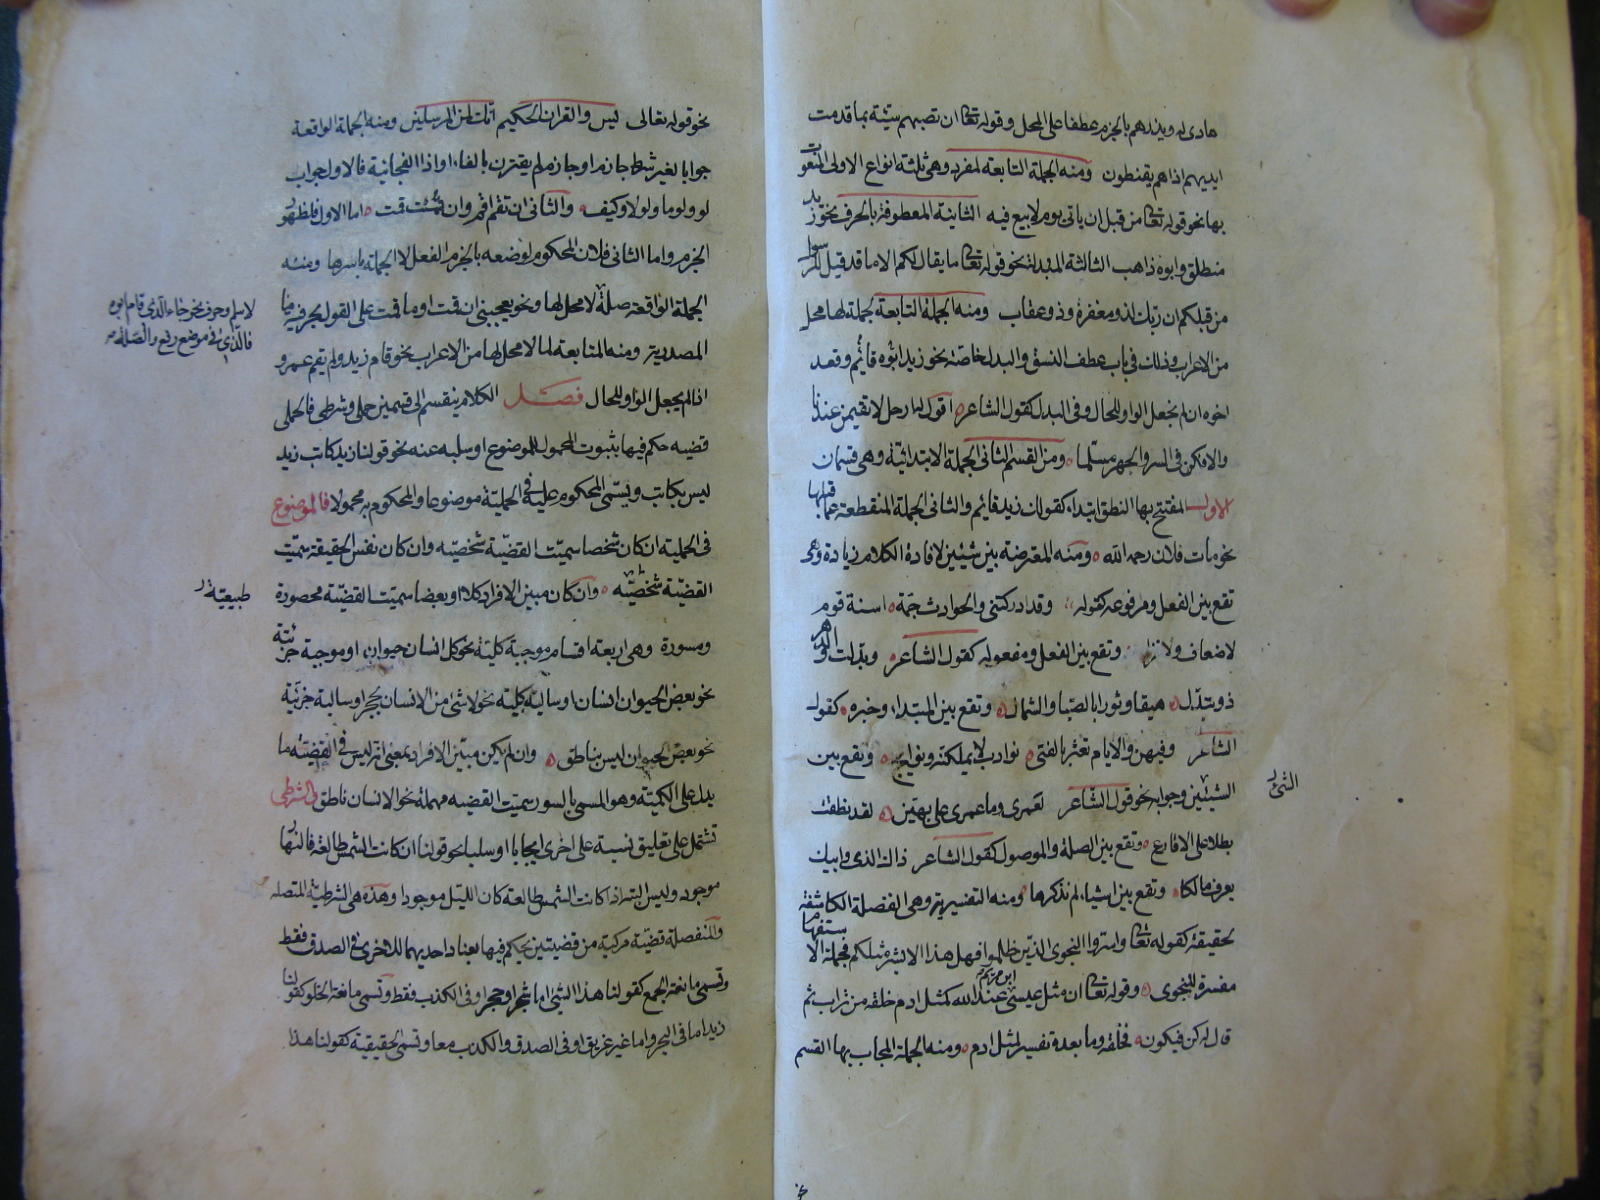 هادى له ويذدهم بالجزم عطفا على المحل وقوله تعا ان تصبهم سيئة بما قدمت
ايديهم اذا هم يقنطون ومنه الجملة التابعة لمفرد وهى ثلثة انواع الاولى المنعوت
بها نحو قوله تعا من قبل ان ياتى يوم لا بيع فيه الثانية المعطوفة بالحرف نحو زيد
منطلق وابوه ذاهب الثالثة المبدلة نحو قوله تعا ما يقال لكم الا ما قد قيل للرسول
من قبلكم ان ربك لذو مغفرة وذو عقاب ومنه الجملة التابعة لجملة لها محل
من الاعراب وذلك فى باب عطف النسق والبدل خاصة نحو زيد ابوه قائم وقعد
اخوه ان لم تجعل الواو للحال وفى البدل كقول الشاعر اقول له ارحل لا تقيمن عندنا
والا فكن فى السر والجهر مسلما ومن القسم الثانى الجملة الابتدائية وهى قسمان
الاول المفتتح بها النطق ابتداء كقولك زيد قائم والثانى الجملة المنقطعة عما قبلها
نحو مات فلان رحمه الله ومنه المعترضة بين شيئين لافادة الكلام زيادة وهى
تقع بين الفعل ومرفوعه كقوله وقد ادركتنى والحوادث جمة اسنة قوم
لا ضعاف ولا وتقع بين الفعل ومفعوله كقول الشاعر وبدلت والدهر
ذو تبدل هيفا دبورا بالصبا والشمال وتقع بين المبتداء وخبره كقول
الشاعر وفيهن والايام تعثر بالفتى نوادب لا يمللنه ونوايح وتقع بين
الشيئين وجوابه نحو قول الشاعر لعمرى وما عمرى على بهين لقد نطقت
بطلا على الاقارع وتقع بين الصلة والموصول كقول الشاعر ذاك الذى وابيك
يعرف مالكا وتقع بين اشياء لم نذكرها ومنه التفسيرية وهى الفضلة الكاشفة
لحقيقة كقوله تعا واسروا النجوى الذين ظلموا هل هذا الا بشر مثلكم فجملة الاستفهام
مفسرة للنجوى وقوله تعا ان مثل عيسى ابن مريم عند الله كمثل ادم خلقه من تراب ثم
قال له كن فيكون فخلقه وما بعده تفسير لمثل ادم ومنه الجملة المجاب بها القسم
نحو قوله تعالى يس والقران الحكيم انك لمن المرسلين ومنه الجملة الواقعة
جوابا لغير شرط جازم او جازم لم يقترن بالفاء او اذا الفجائية فالاول جواب
لو ولوما ولولا وكيف والثانى ان تقم اقم وان قمت قمت اما الاول فلظهور
الجزم واما الثانى فلان المحكوم لوضعه بالجزم الفعل لا الجملة باسرها ومنه
الجملة الواقعة صلة لا محل لها ونحو يعجبنى ان قمت او ما قمت على القول بحرفية ما
المصدرية ومنه المتابعة لما لا محل لها من الاعراب نحو قام زيد ولم يقم عمرو
اذا لم يجعل الواو للحال فصل الكلام ينقسم الى قسمين حملى وشرطى فالحملى
قضيه حكم فيها بثبوت المحمول للموضوع او سلبه عنه نحو قولنا زيد كاتب زيد
ليس بكاتب ويسمى المحكوم عليه فى الحملية موضوعا والمحكوم به محمولا فالموضوع
فى الحملية ان كان شخصا سميت القضية شخصيه وان كان نفس الحقيقة سميت
القضية شخصيه وان كان مبين الافراد كلا او بعضا سميت القضية محصورة
ومسورة وهى اربعة اقسام موجبة كلية نحو كل انسان حيوان او موجبة جزئية
نحو بعض الحيوان انسان او سالبة كلية نحو لا شئ من الانسان بحجر او سالبة جزئية
نحو بعض الحيوان ليس بناطق وان لم يكن مبين الافراد بمعنى انه ليس فى القضية ما
يدل على الكمية وهو المسمى بالسور سميت القضيه مهملة نحو الانسان ناطق والشرطى
تشتمل على تعليق نسبة على اخرى ايجابا او سلبا نحو قولنا ان كانت الشمس طالعة فالنهار
موجود وليس البتة اذا كانت الشمس طالعة كان الليل موجودا وهذه هى الشرطية المتصلة
والمنفصلة قضية مركبة من قضيتين يحكم فيها بعناد احديهما للاخرى فى الصدق فقط
وتسمى مانعة الجمع كقولنا هذا الشئ اما شجر او حجر او فى الكذب فقط وتسمى مانعة الخلو كقولنا
زيد اما فى البحر واما غير غريق او فى الصدق والكذب معا وتسمى الحقيقية كقولنا هذا
لاسم او حرف نحو جاء الذى قام ابوه
فالذى فى موضع رفع والصلة
طبيعية